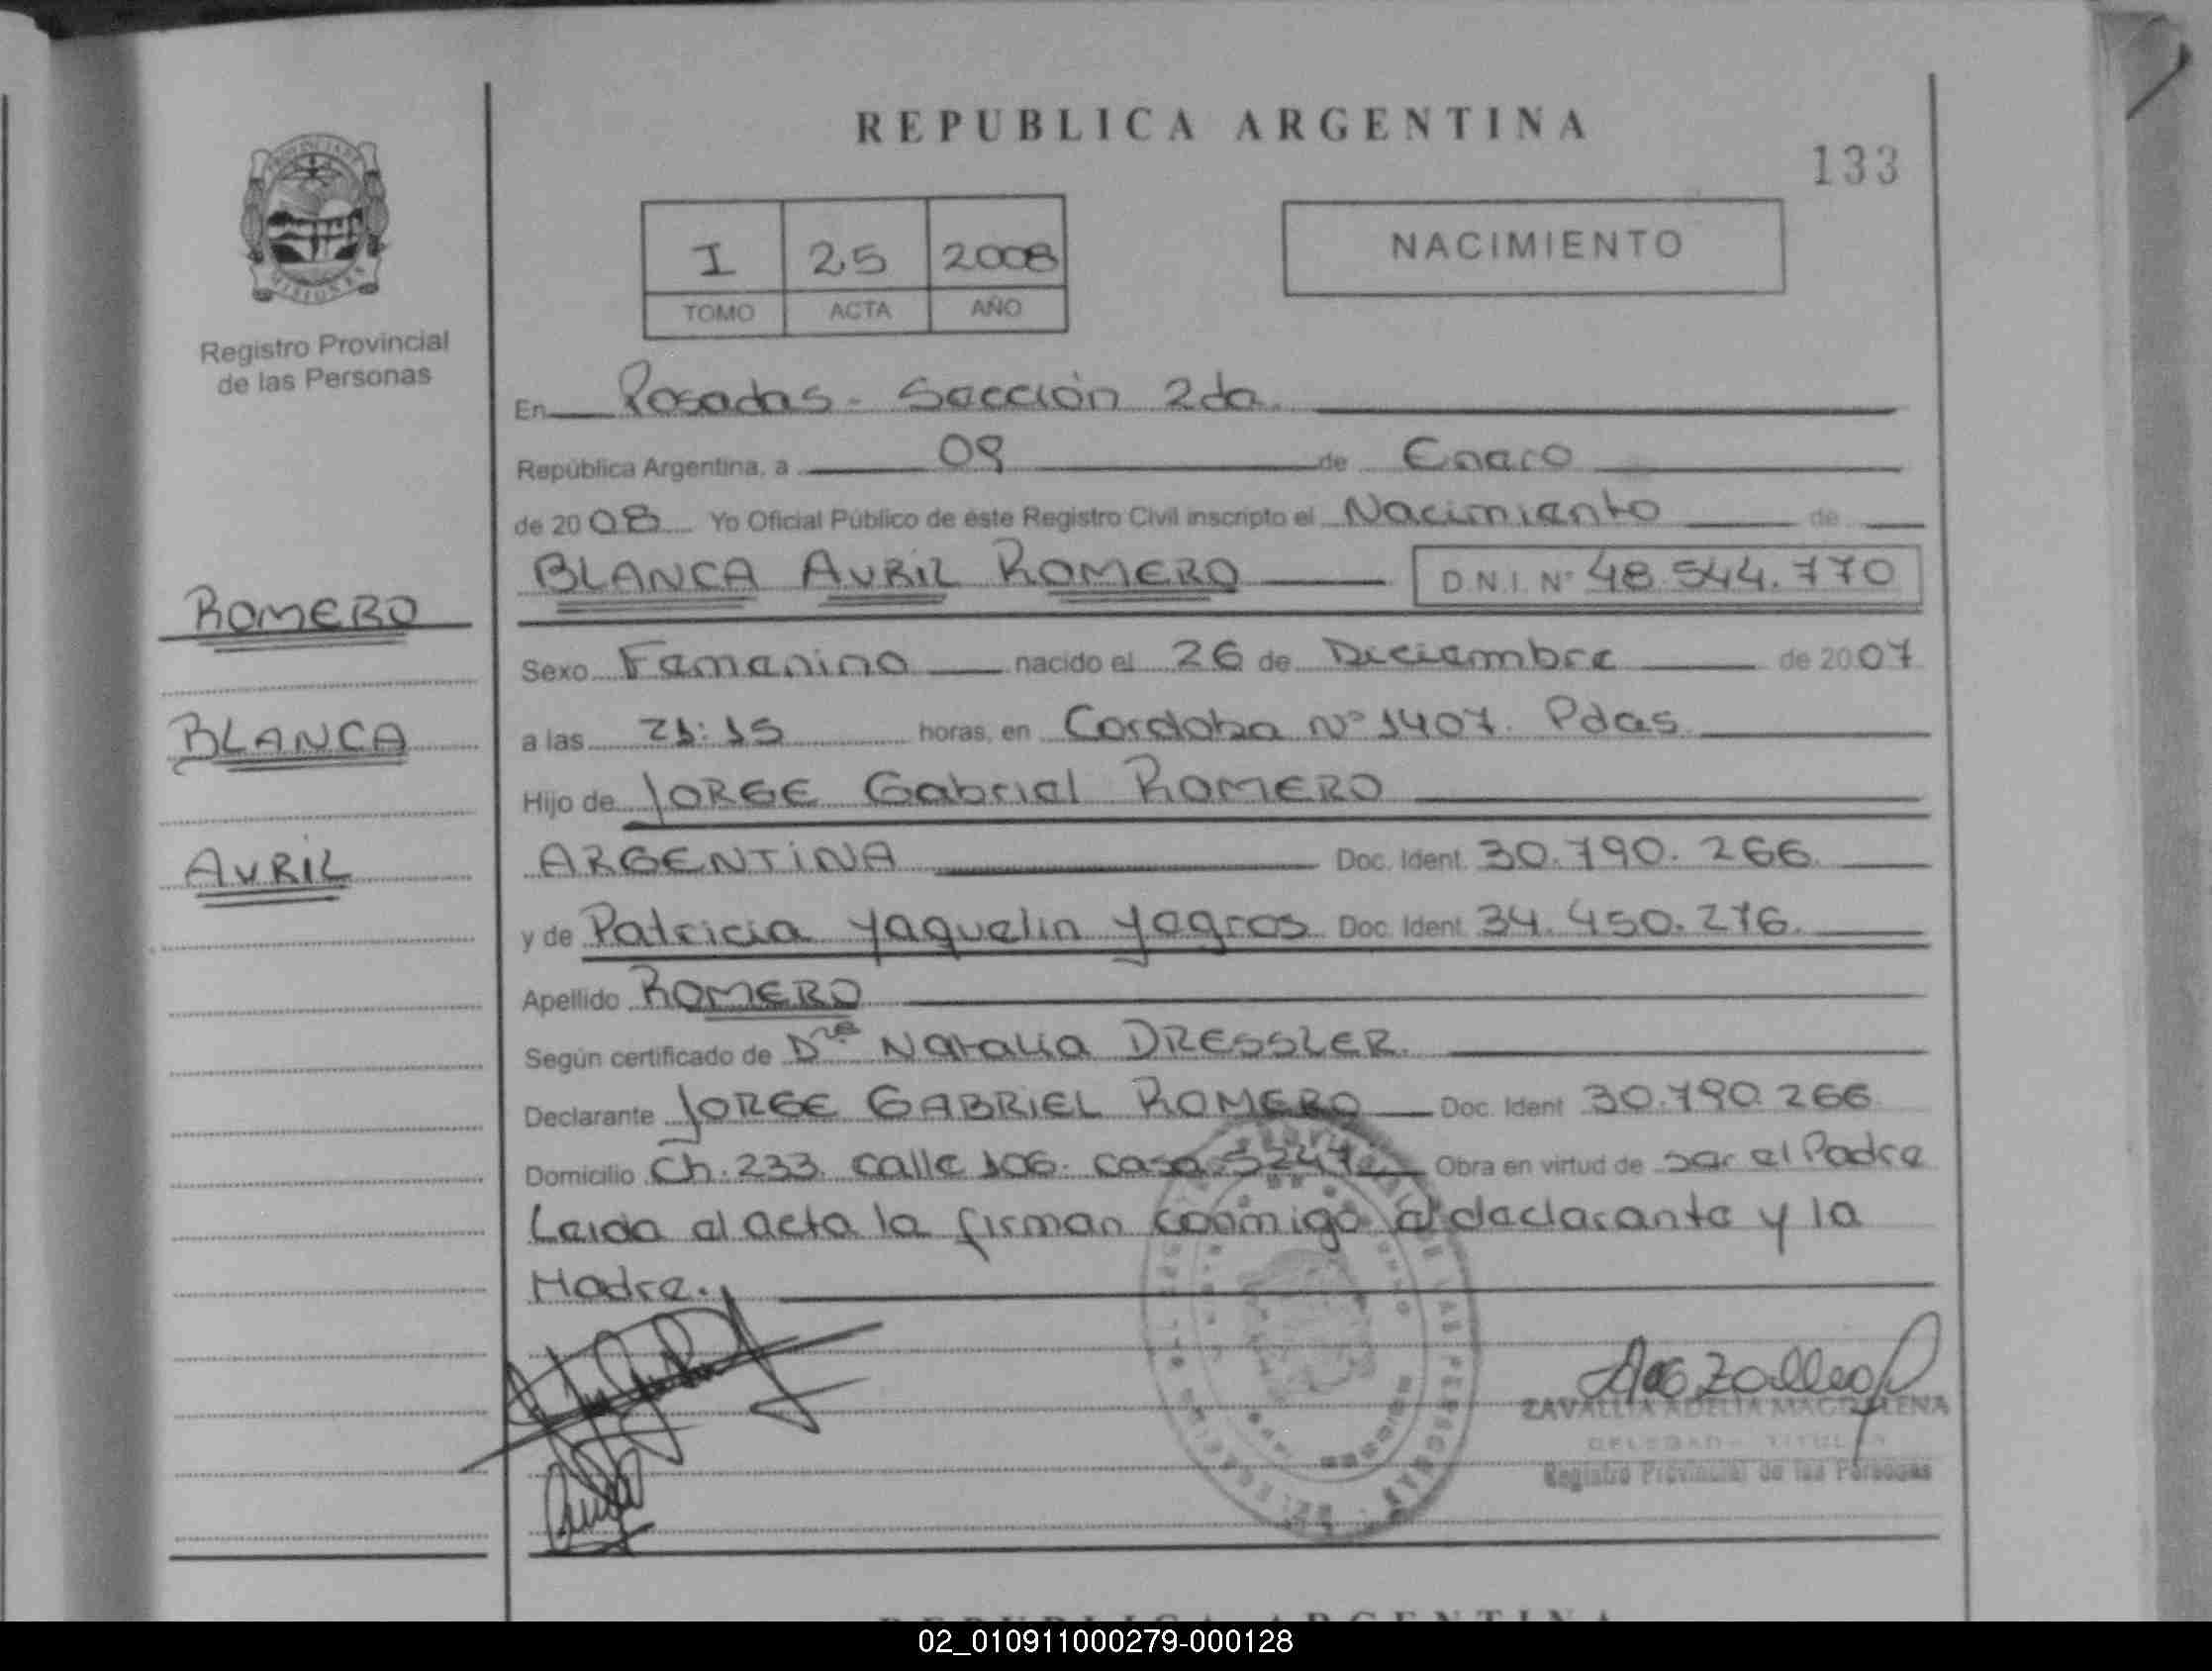 REPUBLICA ARGENTINA
133
PROVINCIA DE
MISIONES
Registro Provincial
de las Personas
I 25 2008
TOMO ACTA AÑO
NACIMIENTO
En Posadas - Sección 2da.
República Argentina, a 09 de Enero
de 2008 Yo Oficial Público de éste Registro Civil inscripto el Nacimiento de
BLANCA AVRIL ROMERO D.N.I. N° 48.544.770
ROMERO
BLANCA
AVRIL
Sexo Femenino nacido el 26 de Diciembre de 2007
a las 21:15 horas, en Cordoba N° 1407. Pdas
Hijo de JORGE Gabriel ROMERO
ARGENTINA Doc. Ident. 30.790.266.
y de Patricia Yaquelin Yegros Doc. Ident. 34.450.276.
Apellido ROMERO
Según certificado de Dra Natalia DRESSLER.
Declarante JORGE GABRIEL ROMERO Doc. Ident 30.790.266
Domicilio Ch. 233. calle 106. casa Obra en virtud de ser el Padre
Leida el acta la firman conmigo el declarante y la
Madre.
ZAVALLIA ADELIA MAGDALENA
DELEGADA TITULAR
Registro Provincial de las Personas
REPUBLICA ARGENTINA
02_010911000279-000128